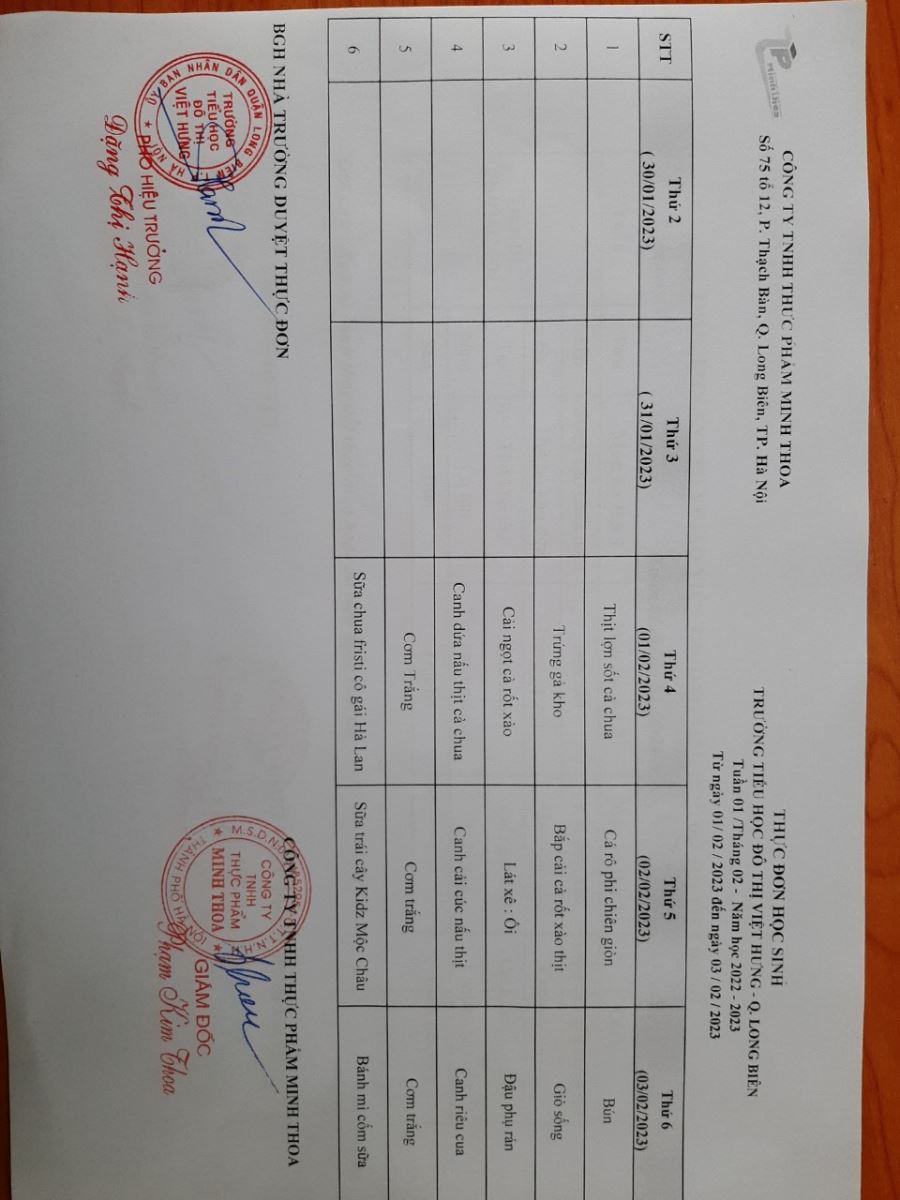 Minh Thoa
CÔNG TY TNHH THỰC PHẨM MINH THOA
Số 75 tổ 12, P. Thạch Bàn, Q. Long Biên, TP. Hà Nội
THỰC ĐƠN HỌC SINH
TRƯỜNG TIỂU HỌC ĐÔ THỊ VIỆT HƯNG - Q. LONG BIÊN
Tuần 01 /Tháng 02 - Năm học 2022 - 2023
Từ ngày 01/ 02 / 2023 đến ngày 03 / 02 / 2023
STT Thứ 2 Thứ 3 Thứ 4 Thứ 5 Thứ 6
( 30/01/2023) ( 31/01/2023) (01/02/2023) (02/02/2023) (03/02/2023)
1 Thịt lợn sốt cà chua Cá rô phi chiên giòn Bún
2 Trứng gà kho Bắp cải cà rốt xào thịt Giò sống
3 Cải ngọt cà rốt xào Lát xê : Ổi Đậu phụ rán
4 Canh dứa nấu thịt cà chua Canh cải cúc nấu thịt Canh riêu cua
5 Cơm Trắng Cơm trắng Cơm trắng
6 Sữa chua fristi cô gái Hà Lan Sữa trái cây Kidz Mộc Châu Bánh mì cốm sữa
BGH NHÀ TRƯỜNG DUYỆT THỰC ĐƠN
CÔNG TY TNHH THỰC PHẨM MINH THOA
ỦY BAN NHÂN DÂN QUẬN LONG BIÊN
HÀ NỘI
TRƯỜNG
TIỂU HỌC
ĐÔ THỊ
VIỆT HƯNG
PHÓ HIỆU TRƯỞNG
Đặng Thị Hạnh
M.S.D.N
CÔNG TY
TNHH
THỰC PHẨM
MINH THOA
THÀNH PHỐ HÀ NỘI
GIÁM ĐỐC
Phạm Kim Thoa